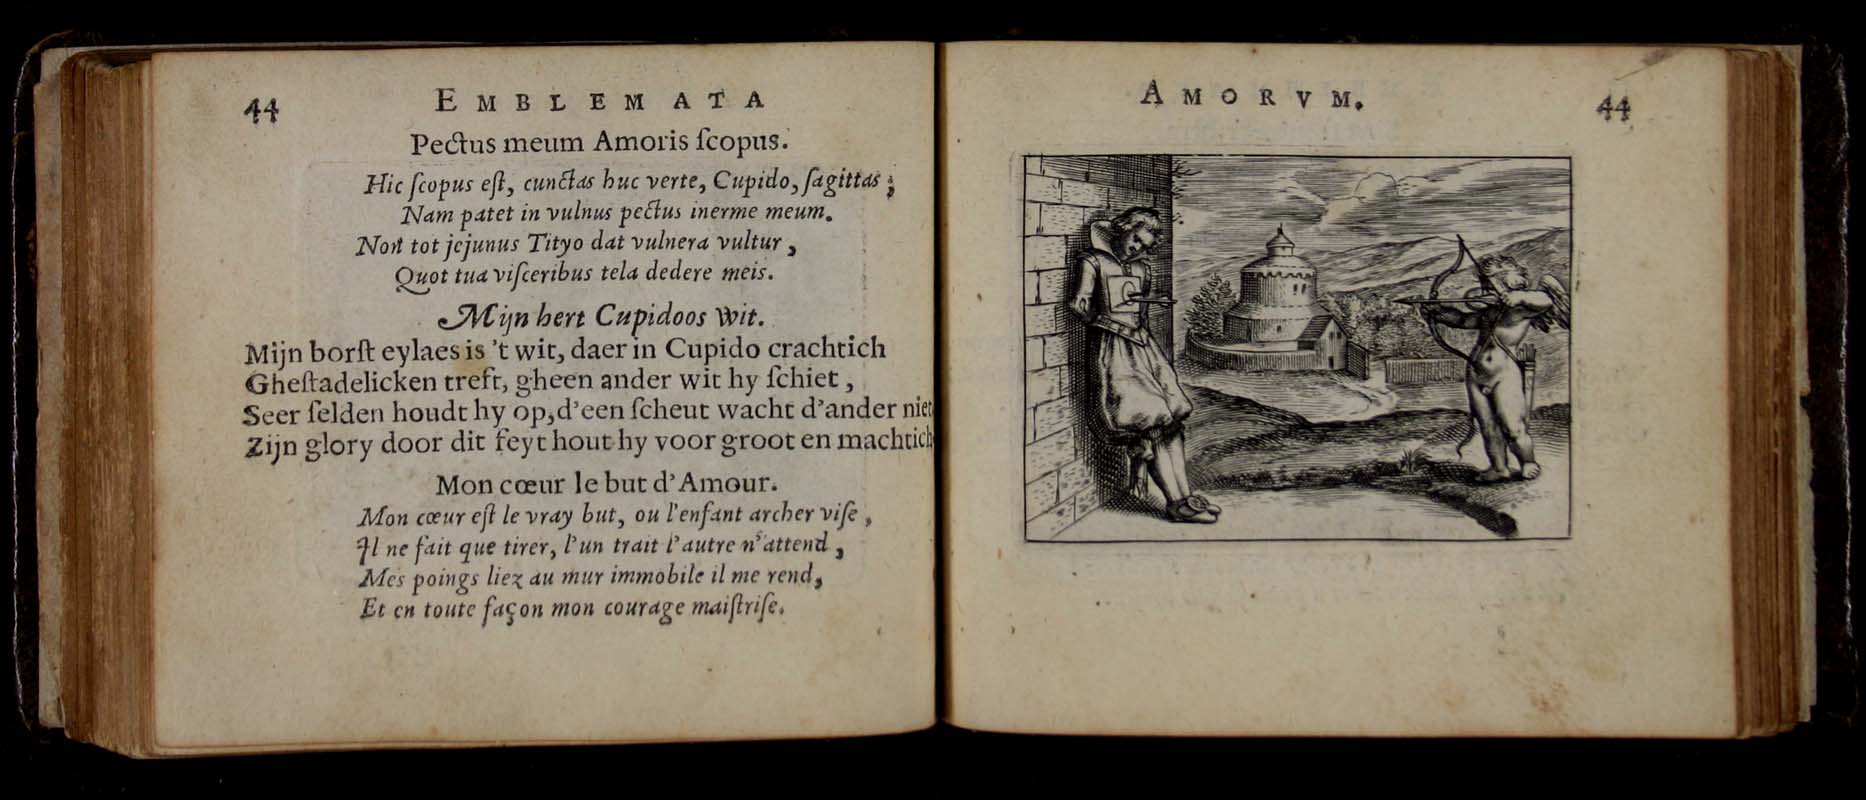 44 EMBLEMATA
Pectus meum Amoris ſcopus.
Hic ſcopus eſt, cunctas huc verte, Cupido, ſagittas;
Nam patet in vulnus pectus inerme meum.
Non tot jejunus Tityo dat vulnera vultur,
Quot tua viſceribus tela dedere meis.
Mijn hert Cupidoos wit.
Mijn borſt eylaes is 't wit, daer in Cupido crachtich
Gheſtadelicken treft, gheen ander wit hy ſchiet,
Seer ſelden houdt hy op, d'een ſcheut wacht d'ander niet
Zijn glory door dit feyt hout hy voor groot en machtich
Mon cœur le but d'Amour.
Mon cœur eſt le vray but, ou l'enfant archer viſe,
Il ne fait que tirer, l'un trait l'autre n'attend,
Mes poings liez au mur immobile il me rend,
Et en toute façon mon courage maiſtriſe.
AMORVM. 44